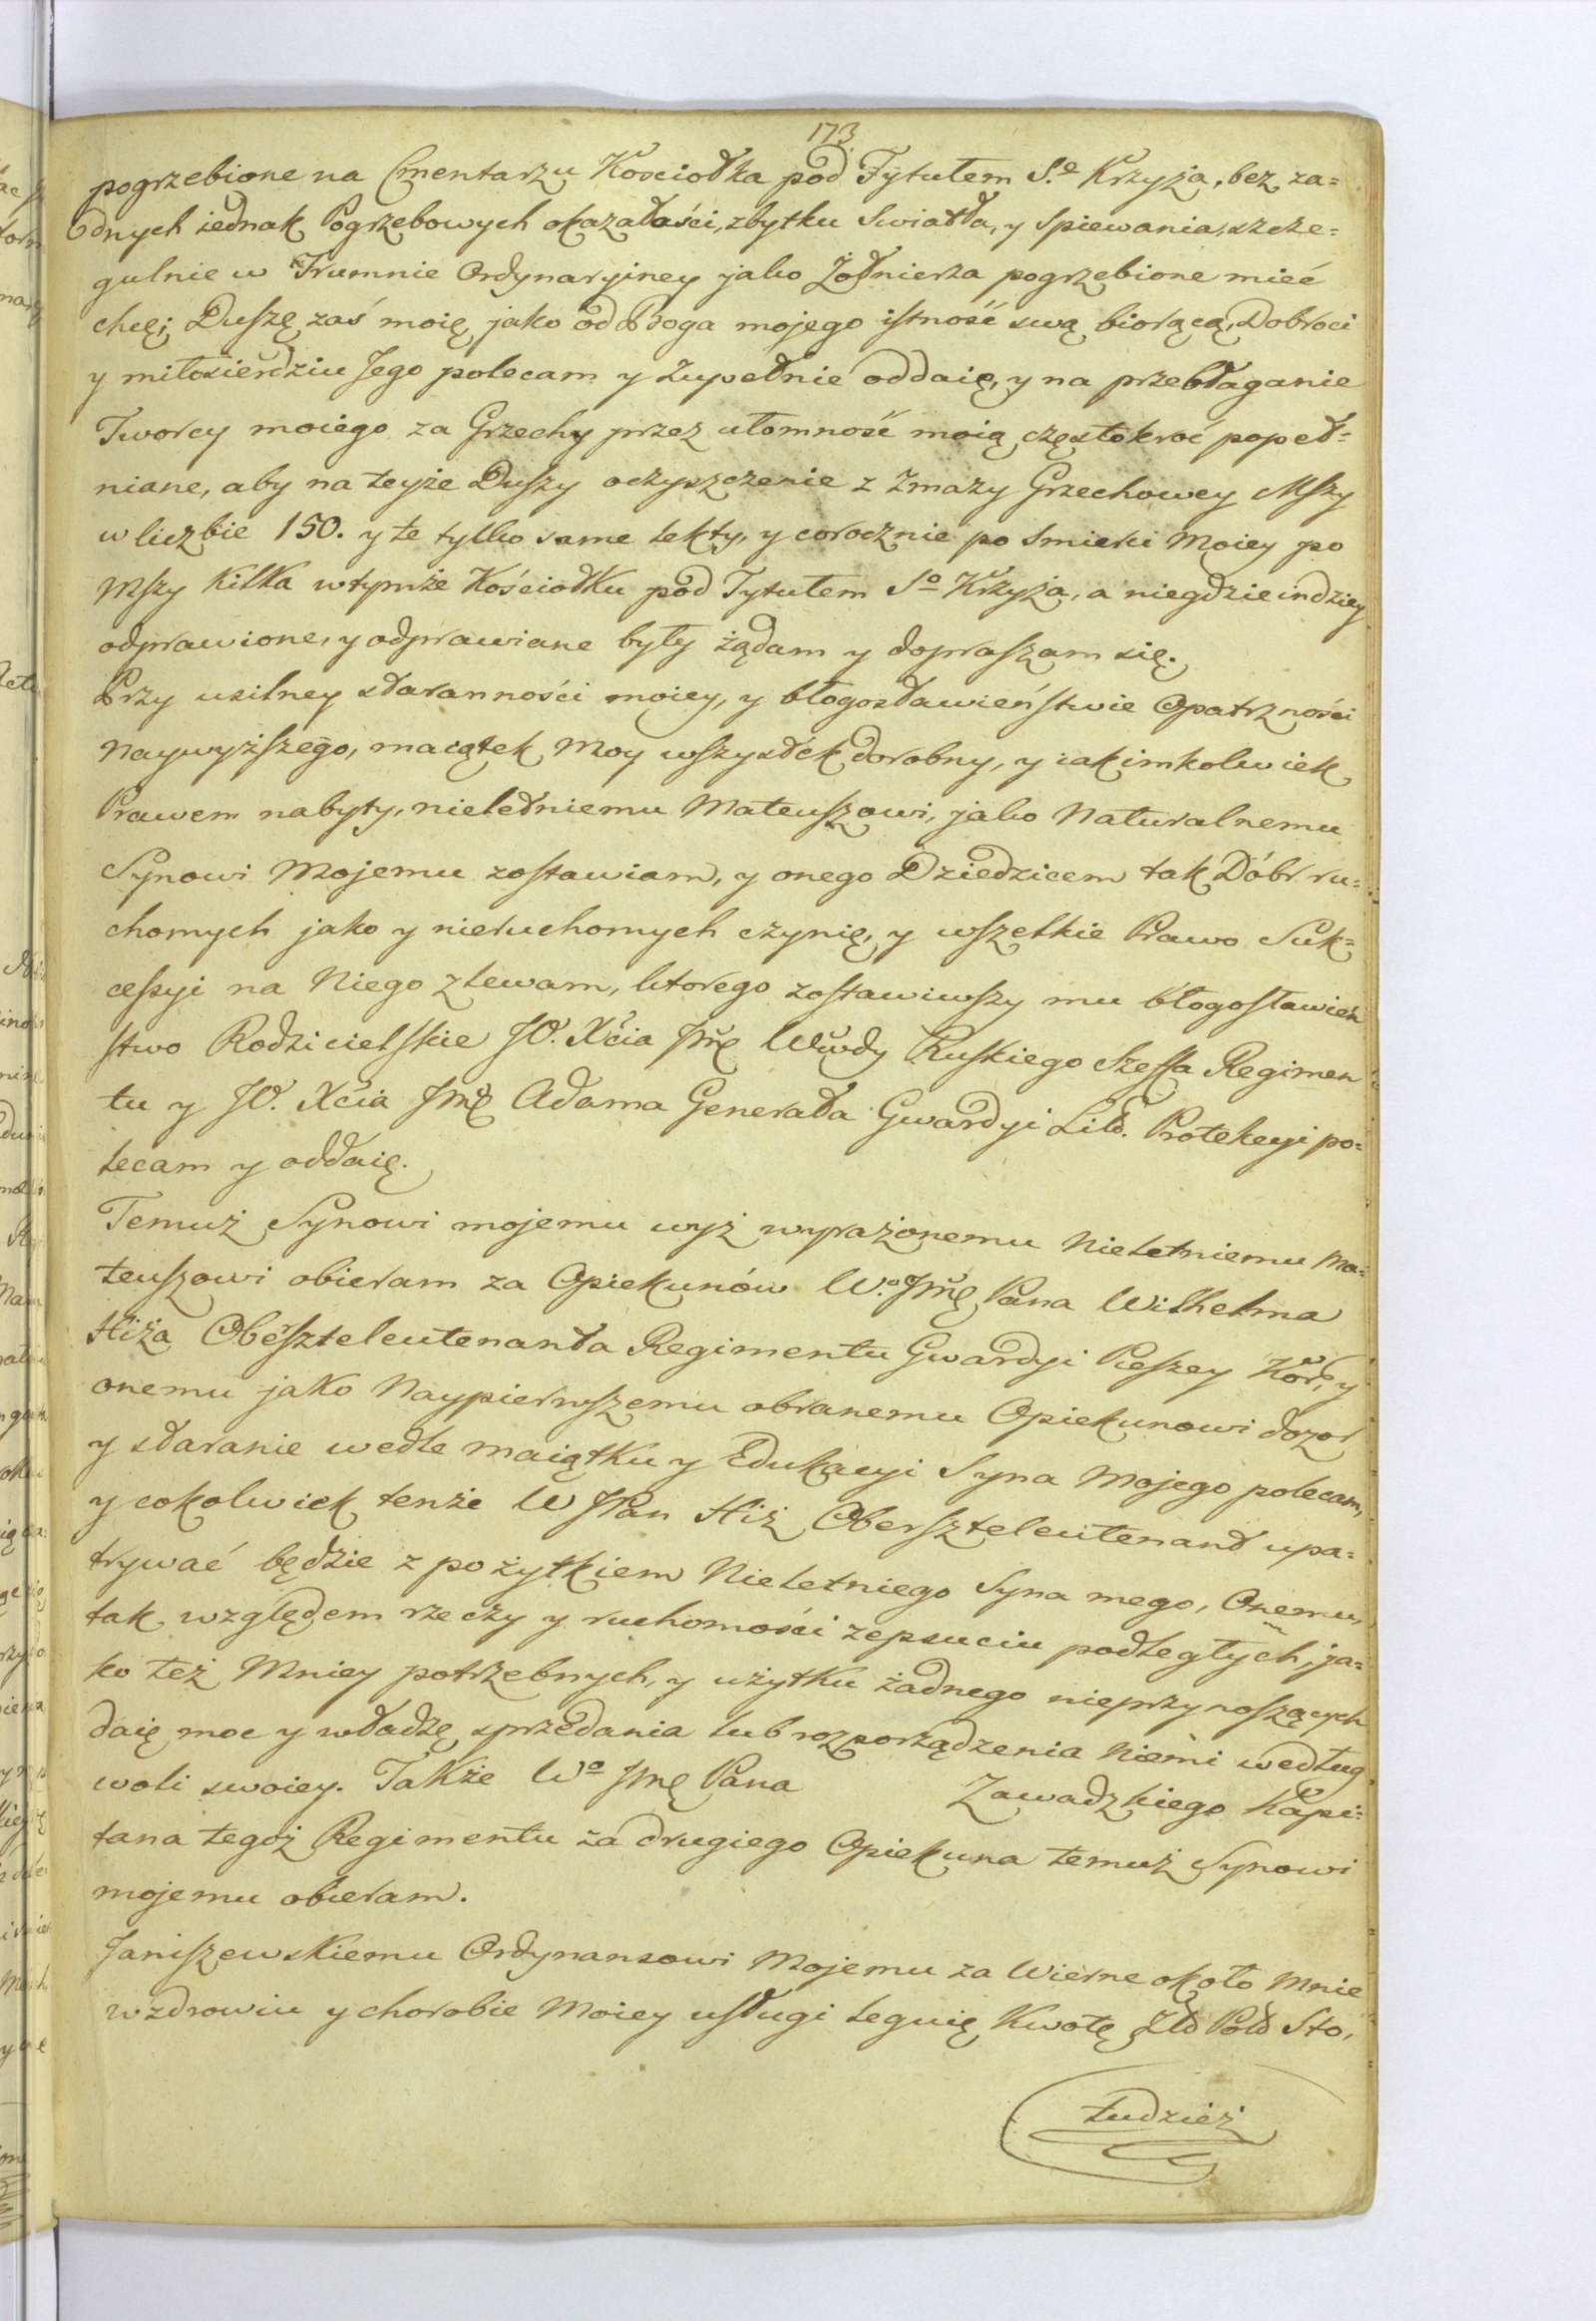 173
pogrzebione na Cmentarzu Kościołka pod Tytułem S.o Krzyża, bez ża=
dnych iednak Pogrzebowych okazałości, zbytku Swiatła, y Spiewania, szcze=
gulnie w Trumnie Ordynaryiney jako Żołnierza pogrzebione mieć
chcę; Duszę zaś moię jako od Boga mojego istność swą biorącą, Dobroci
y miłosierdziu Jego polecam y Zupełnie oddaię, y na przebłaganie
Tworcy moiego za Grzechy przez ułomność moią częstokroć popeł=
niane, aby na teyże Duszy oczyszczenie z Zmazy Grzechowey Mszy
w liczbie 150. y te tylko same lekty, y corocznie po Smierci Moiey po
Mszy kilka w tymże Kościołku pod Tytułem So Krzyża, a niegdzieindziey
odprawione, y odprawiane były żądam y dopraszam się.
Przy usilney staranności moiey, y błogosławieństwie Opatrzności
Naywyższego, maiątek Moy wszystek dorobny, y iakimkolwiek
Prawem nabyty, nieletniemu Mateuszowi, jako Naturalnemu
Synowi Mojemu zostawiam, y onego Dziedzicem tak Dóbr ru=
chomych jako y nieruchomych czynię, y wszelkie Prawo Suk=
cessyi na Niego zlewam, ktorego zostawiwszy mu błogosławień
stwo Rodzicielskie JO. Xcia Jmę Wwdy Ruskiego Szeffa Regimen
tu y JO. Xcia Jmę Adama Generała Gwardyi Litt. Protekcyi po=
lecam y oddaię.
Temuż Synowi mojemu wyż wyrażonemu Nieletniemu Ma=
teuszowi obieram za Opiekunów W.o Jmę Pana Wilhelma
Hiża Oberszteleutenanta Regimentu Gwardyi Pieszey Kor, y
onemu jako Naypierwszemu obranemu Opiekunowi dozor
y staranie wedle maiątku y Edukacyi Syna Mojego polecam,
y cokolwiek tenże W JPan Hiż Oberszteleutenant upa=
trywać będzie z pożytkiem Nieletniego Syna mego, Onemu,
tak względem rzeczy y ruchomości zepsuciu podległych, ja=
ko też Mniey potrzebnych, y użytku żadnego nieprzynoszących
daię moc y władzę sprzedania lub rozporządzenia Niemi według
woli swoiey. Także Wo Jmę Pana Zawadzkiego Kapi=
tana tegoż Regimentu za drugiego Opiekuna temuż Synowi
mojemu obieram.
Janiszewskiemu Ordynansowi Mojemu za Wierne około Mnie
w zdrowiu y chorobie Moiey usługi leguię Kwotę Złł Poll Sto,
tudzież